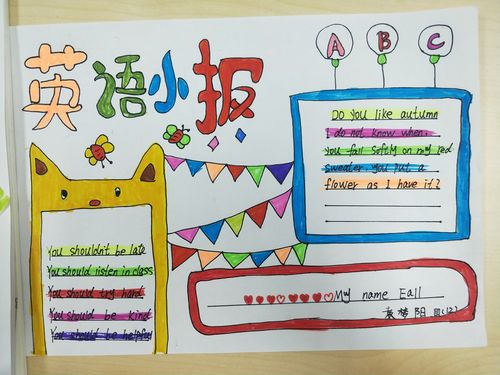 英语小报
A B C
Do you like autumn
I do not know when
you fall softly on my red
Sweater you put a
flower as I have it?
You shouldn't be late
You should listen in class
You should try hard
You should be kind
You should be helpful
My name Eall
梦阳 四(2)